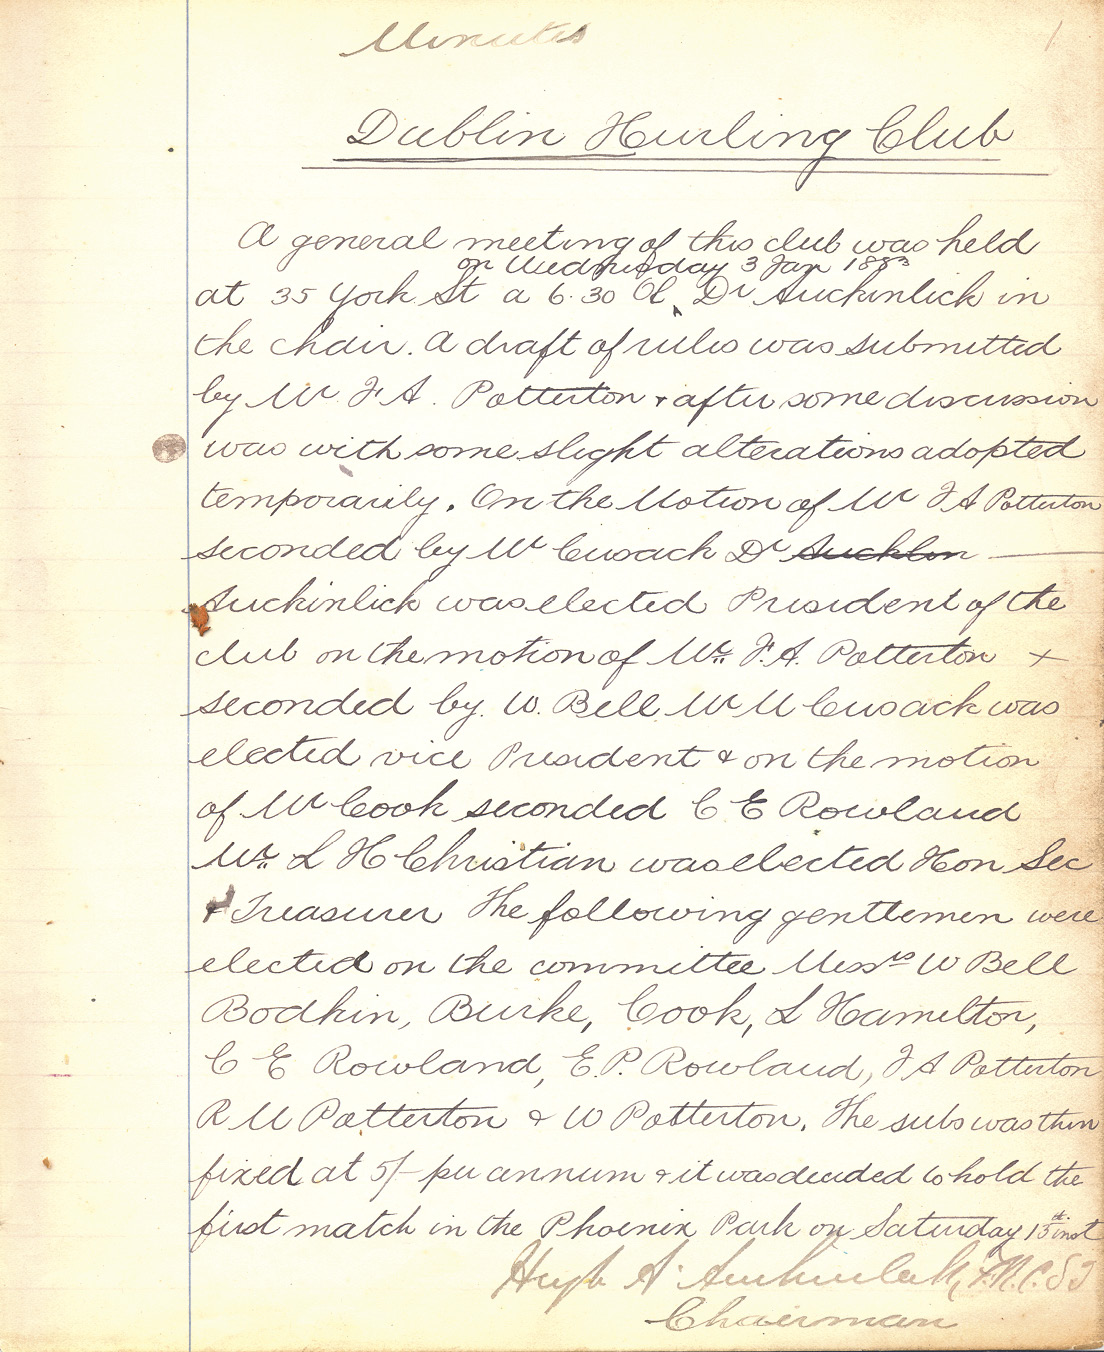 Minutes
1
Dublin Hurling Club
A general meeting of this club was held
on Wednesday 3 Jan 1883
at 35 York St a 6.30 Ol Dr Auckinlick in
the chair. A draft of rules was submitted
by Mr. F A. Potterton & after some discussion
was with some slight alterations adopted
temporarily. On the Motion of Mr F A Potterton
seconded by Mr Cusack Dr Aucklin
Auckinlick was elected President of the
club on the motion of Mr. F. A. Potterton
seconded by. W. Bell Mr M Cusack was
elected vice President & on the motion
of Mr Cook seconded C E Rowland
Mr. L H Christian was elected Hon Sec
& Treasurer The following gentlemen were
elected on the committee Messrs W Bell
Bodkin, Burke, Cook, L Hamilton,
C E Rowland, E. P. Rowland, F A Potterton
R M Potterton & W Potterton. The subs was then
fixed at 5/- per annum & it was decided to hold the
first match in the Phoenix Park on Saturday 15th inst
Hugh A. F.R.C.S I
Chairman